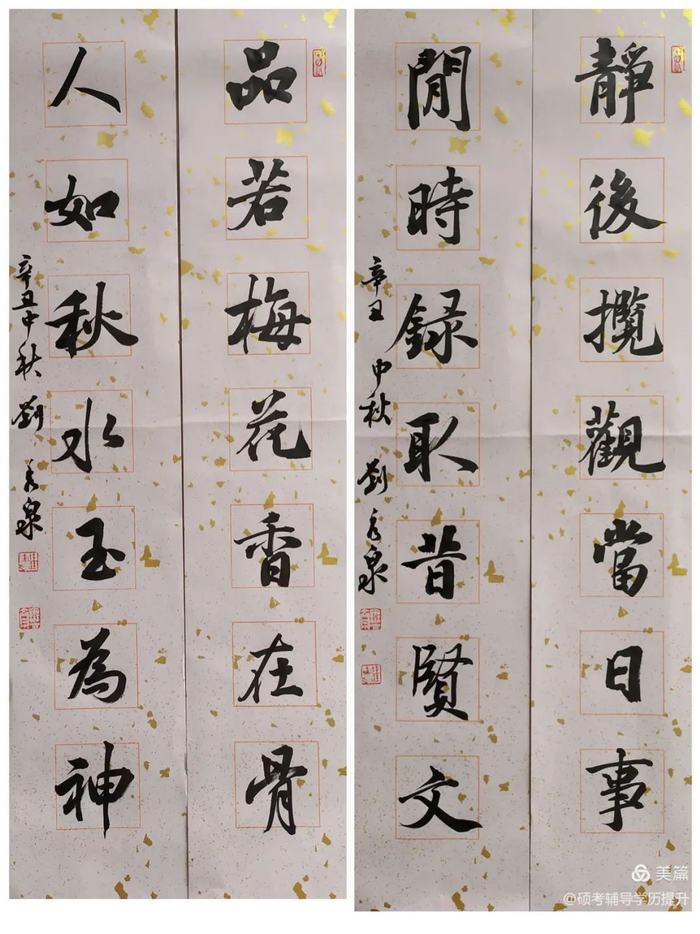 靜後攬觀當日事
閒時録取昔賢文
辛丑中秋 劉 泉
品若梅花香在骨
人如秋水玉為神
辛丑中秋 劉 泉
美篇
@硕考辅导学历提升